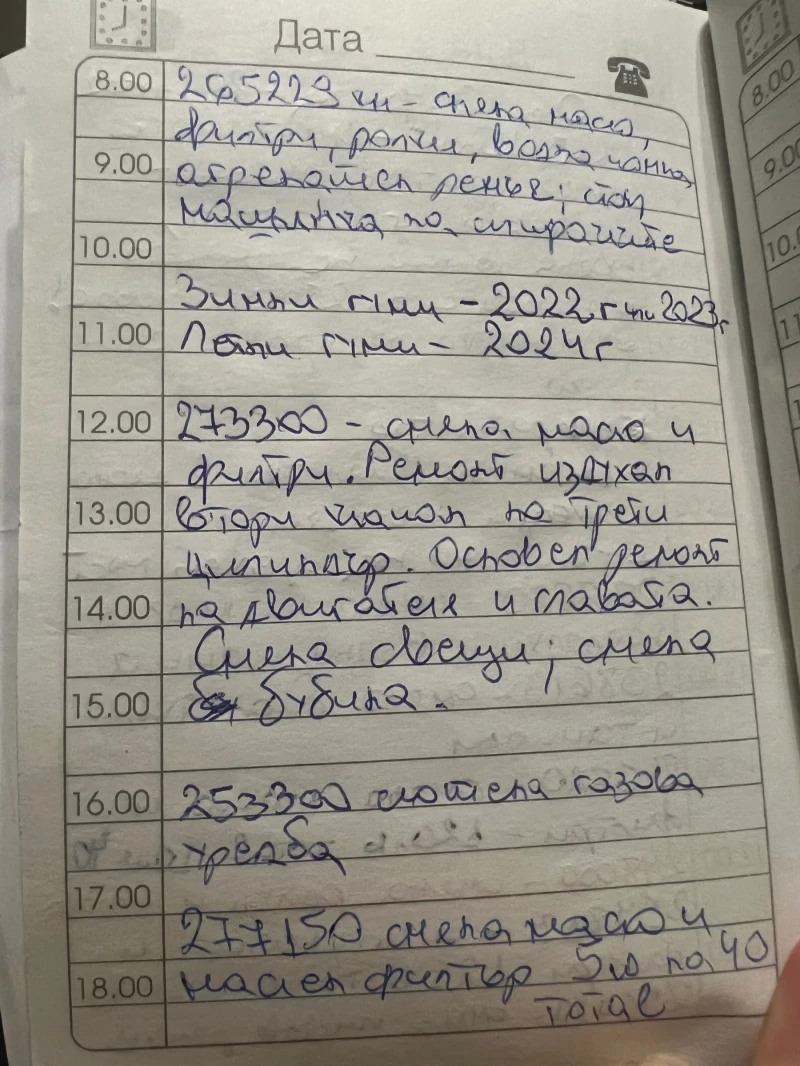 Дата
8.00 265229 км - смяна масло,
филтри, ролки, водна помпа,
9.00 ангренажен ремък;
на спирачките
10.00
Зимни гуми - 2022г или 2023г
11.00 Летни гуми - 2024г
12.00 273300 - смяна масло и
филтри. Ремонт издухан
13.00 втори на трети
цилиндър. Основен ремонт
14.00 на двигателя и главата.
Смяна свещи; смяна
15.00 бубина.
16.00 253300 сложена газова
уредба
17.00
277150 смяна масло и
18.00 маслен филтър 5w на 40
Total
8.00
9.00
10.0
11